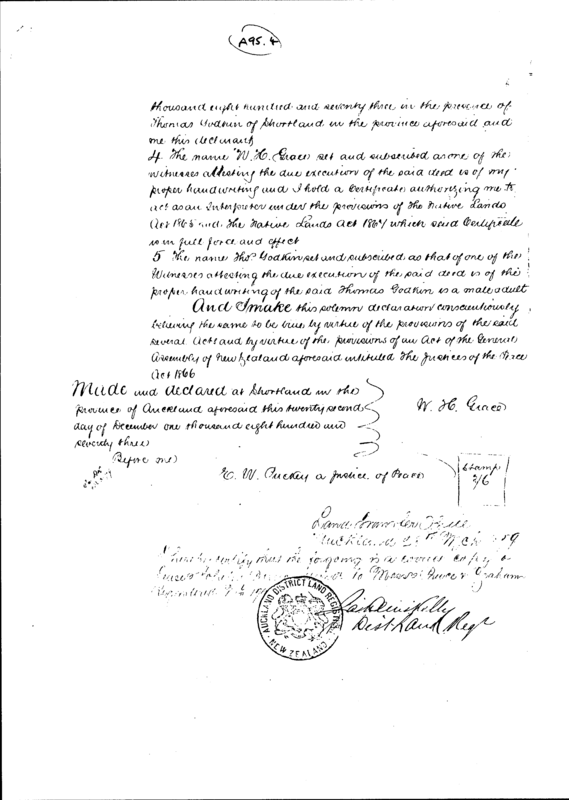 A95.4
thousand eight hundred and seventy three in the province of
Thomas Godkin of Shortland in the province aforesaid and
me this declarant
4 The name "W. H. Grace" set and subscribed as one of the
witnesses attesting the due execution of the said deed is of my
proper handwriting and I hold a Certificate authorizing me to
act as an Interpreter under the provisions of the Native Lands
Act 1865 and The Native Lands Act 1867 which said Certificate
is in full force and effect
5 The name Thos Godkin set and subscribed as that of one of the
Witnesses attesting the due execution of the said deed is of the
proper handwriting of the said Thomas Godkin is a male adult
And I make this solemn declaration conscientiously
believing the same to be true by virtue of the provisions of the said
several Acts and by virtue of the provisions of an Act of the General
Assembly of New Zealand aforesaid intituled The Justices of the Peace
Act 1866
Made and declared at Shortland in the
province of Auckland aforesaid this twenty second
day of December one thousand eight hundred and
seventy three
W. H. Grace
Before me
E. W. Puckey a Justice of Peace
Stamp
2/6
Land Transfer Office
Auckland
I hereby certify that the foregoing is a correct copy
to Messrs Graham
AUCKLAND DISTRICT LAND REGISTRY
NEW ZEALAND
Dist Land Regr